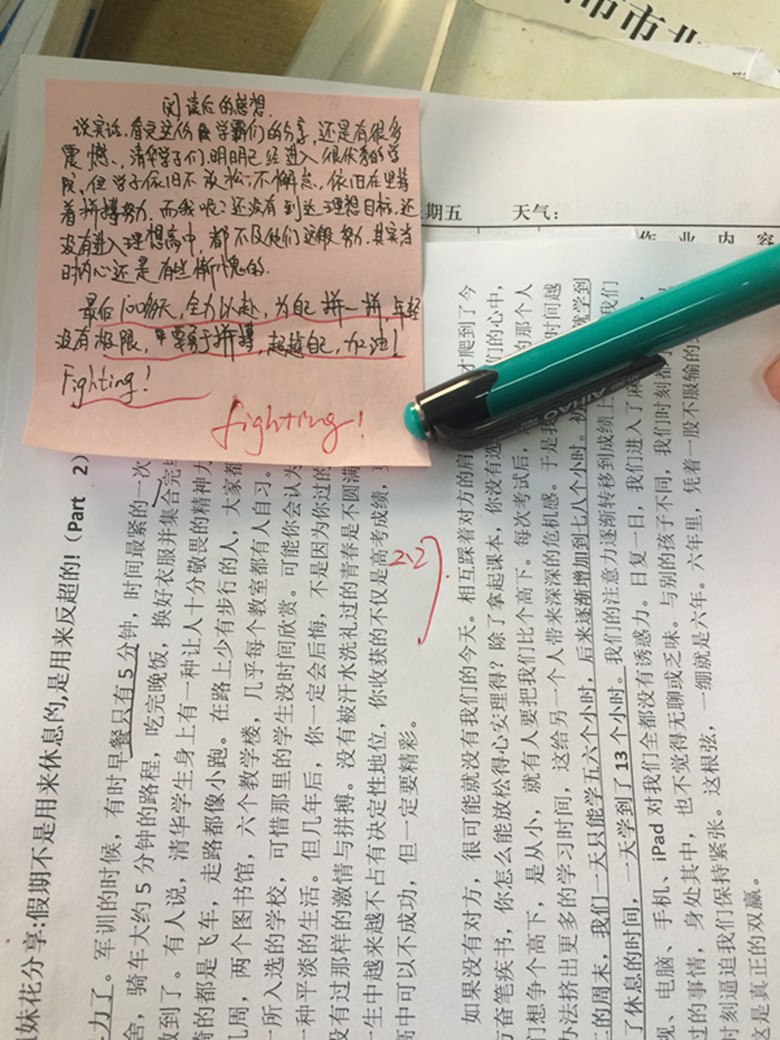 阅读后的感想.
说实话,看完这份学霸们的分享,还是有很多
震憾、清华学子们,明明已经进入很优秀的学
院、但学子依旧不放松,不懈怠,依旧在坚持
着拼搏努力,而我呢?还没有到达理想目标,还
没有进入理想高中,都不及他们这般努力.其实当
时内心还是有些惭愧的.
最后100多天,全力以赴,为自己拼一拼,年轻
没有极限,要勇于拼搏,超越自己,加油!
Fighting!
fighting!
期五 天气：
作 业 内 容
AIHAO
2.2
妹花分享:假期不是用来休息的,是用来反超的!（Part 2）
力了。军训的时候，有时早餐只有5分钟，时间最紧的一次
舍，骑车大约5分钟的路程，吃完晚饭，换好衣服并集合完
做到了。有人说，清华学生身上有一种让人十分敬畏的精神力
骑的都是飞车，走路都像小跑。在路上少有步行的人，大家都
几周，两个图书馆，六个教学楼，几乎每个教室都有人自习。
所入选的学校，可惜那里的学生没时间欣赏。可能你会认为
一种平淡的生活。但几年后，你一定会后悔，不是因为你过的
没有过那样的激情与拼搏。没有被汗水洗礼过的青春是不圆满
一生中越来越不占有决定性地位，你收获的不仅是高考成绩，
高中可以不成功，但一定要精彩。
如果没有对方，很可能就没有我们的今天。相互踩着对方的肩
才爬到了今
奋笔疾书，你怎么能放松得心安理得？除了拿起课本，你没有选
们的心中，
们想争个高下，是从小，就有人要把我们比个高下。每次考试后，
的那个人
办法挤出更多的学习时间，这给另一个人带来深深的危机感。于是我
时间越
二的周末，我们一天只能学五六个小时，后来逐渐增加到七八个小时。初
就学到
了休息的时间，一天学到了13个小时。我们的注意力逐渐转移到成绩上
我们
视、电脑、手机、iPad对我们全都没有诱惑力。日复一日，我们进入了麻
过的事情，身处其中，也不觉得无聊或乏味。与别的孩子不同，我们时刻都
时刻逼迫我们保持紧张。这根弦，一绷就是六年。六年里，凭着一股不服输的
这是真正的双赢。